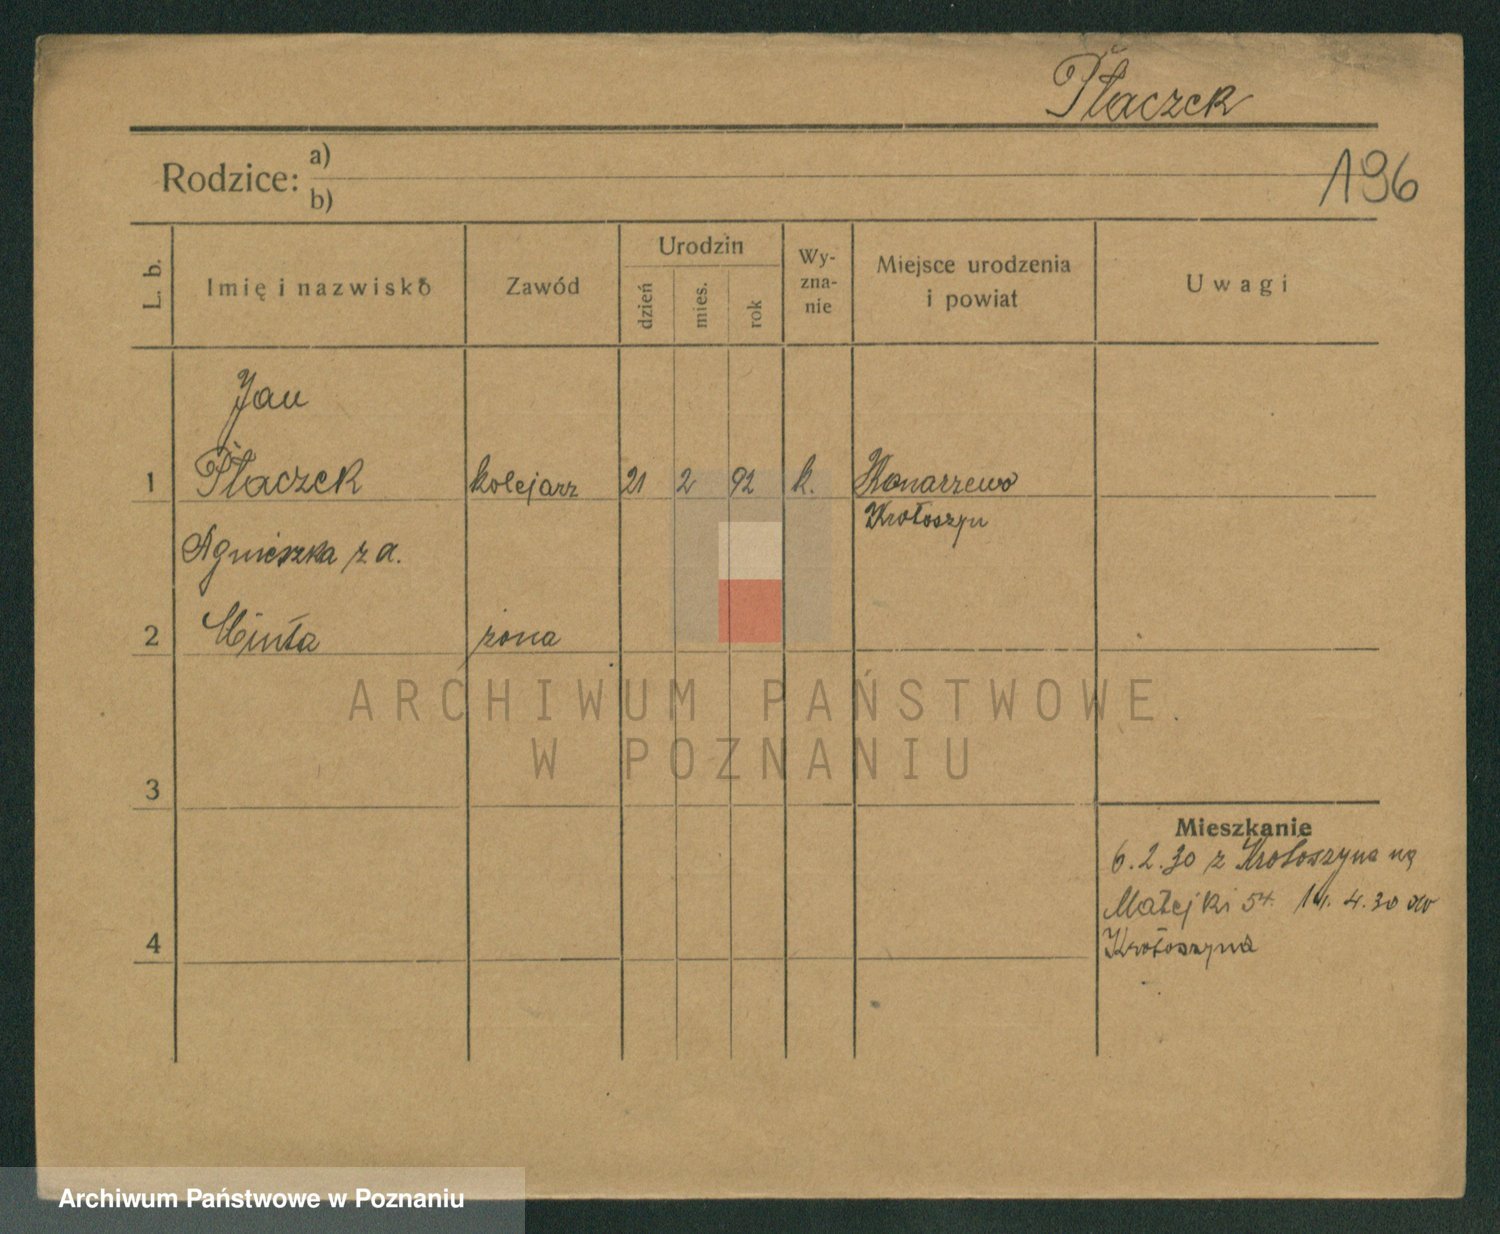 Płaczek
196
Rodzice: a)
b)
L. b.
Imię i nazwisko
Zawód
Urodzin
dzień
mies.
rok
Wy-
zna-
nie
Miejsce urodzenia
i powiat
Uwagi
Jan
1 Płaczek kolejarz 21 2 92 k. Konarzewo
Krotoszyn
Agnieszka z d.
2 żona
3
4
Mieszkanie
6.2.30 z Krotoszyna na
Matejki 54. 14.4.30 do
Krotoszyna
ARCHIWUM PAŃSTWOWE
W POZNANIU
Archiwum Państwowe w Poznaniu